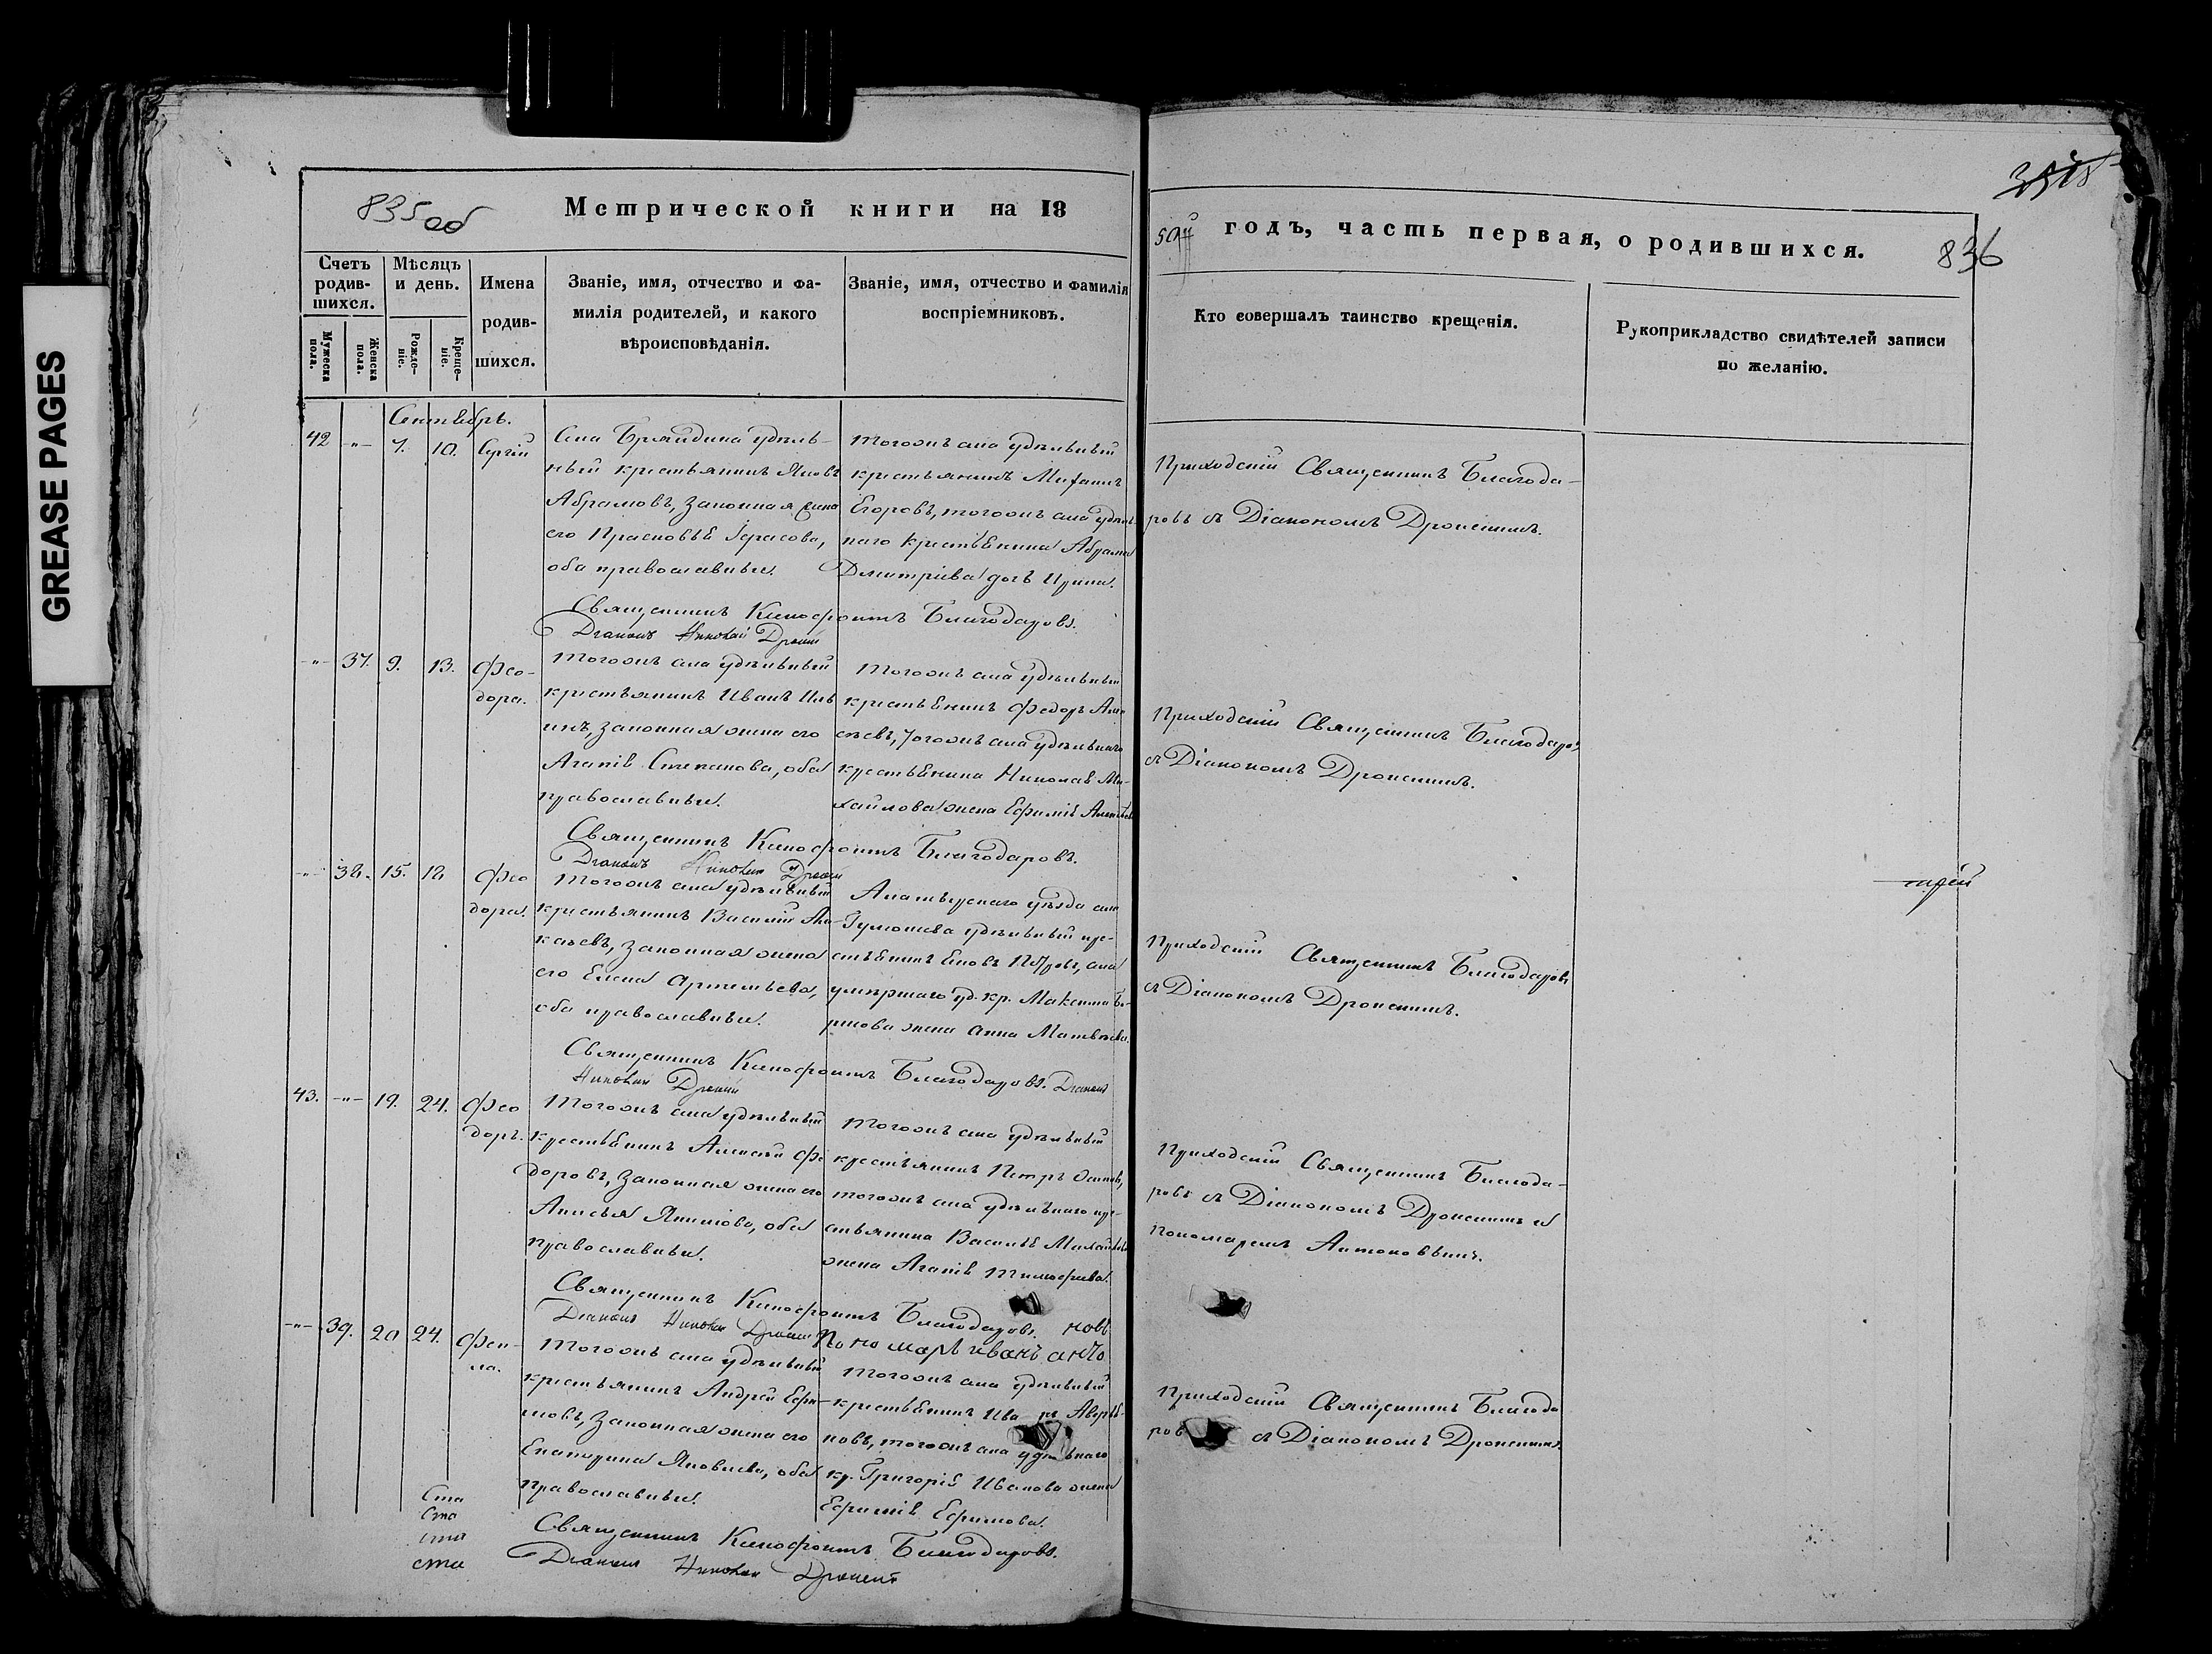 GREASE PAGES
835 об
Метрической книги на 18
50й годъ, часть первая, о родившихся.
836
Счетъ родив-
шихся.
Мужеска пола.
Женска пола.
Мѣсяцъ и день.
Рожде-
ніе.
Креще-
ніе.
Имена
родив-
шихся.
Званіе, имя, отчество и фа-
милія родителей, и какого
вѣроисповѣданія.
Званіе, имя, отчество и фамилія
воспріемниковъ.
Кто совершалъ таинство крещенія.
Рукоприкладство свидѣтелей записи
по желанію.
Сентябрь.
42 -"- 7. 10. Сергій
Села удѣль-
ный крестьянинъ Яковъ
Абрамовъ, законная жена
его Прасковья
оба православные.
Тогожъ села удѣльный
крестьянинъ Михаилъ
Егоровъ, тогожъ села удѣль-
наго крестьянина Абрама
Дмитріева дочь Ирина.
Приходскій Священникъ Благода-
ровъ съ Діакономъ Дронинымъ.
Священникъ Ксенофонтъ Благодаровъ.
Діаконъ Николай Дронинъ
-"- 37. 9. 13. Фео-
дора.
Тогожъ села удѣльный
крестьянинъ Иванъ Иль
инъ, законная жена его
Агапія Степанова, оба
православные.
Тогожъ села удѣльный
крестьянинъ Федоръ Але
ксѣевъ, тогожъ села удѣльнаго
крестьянина Николая Ми-
хайлова жена Ефимія
Приходскій Священникъ Благодаровъ
съ Діакономъ Дронинымъ.
Священникъ Ксенофонтъ Благодаровъ.
Діаконъ Николай Дронинъ
-"- 38. 15. 18 Фео
дора.
Тогожъ села удѣльный
крестьянинъ Василій
законная жена
его Елена Артемьева,
оба православные.
Алатырскаго уѣзда села
удѣльный кре-
стьянинъ Яковъ Петровъ, села
умершаго уд. кр. Максима
жена Анна Матвѣева.
Приходскій Священникъ Благодаровъ
съ Діакономъ Дронинымъ.
Священникъ Ксенофонтъ Благодаровъ. Діаконъ
Николай Дронинъ
43. -"- 19. 24. Фео
доръ.
Тогожъ села удѣльный
крестьянинъ Алексѣй Фе
доровъ, законная жена его
Анисья Якимова, оба
православные.
Тогожъ села удѣльный
крестьянинъ Петръ Осиповъ,
тогожъ села удѣльнаго кре-
стьянина Василья Михайлова
жена Агапія Тимофеева.
Приходскій Священникъ Благода-
ровъ съ Діакономъ Дронинымъ и
пономаремъ Антоновымъ.
Священникъ Ксенофонтъ Благодаровъ.
Діаконъ Николай Дронинъ
Пономарь иванъ анто
новъ
-"- 39. 20 24. Фек-
ла.
Тогожъ села удѣльный
крестьянинъ Андрей Ефи-
мовъ, законная жена его
Екатерина Яковлева, оба
православные.
Тогожъ села удѣльный
крестьянинъ
новъ, тогожъ села удѣльнаго
кр. Григорія Иванова жена
Ефимія Ефимова.
Приходскій Священникъ Благода
ров съ Діакономъ Дронинымъ.
Священникъ Ксенофонтъ Благодаровъ.
Діаконъ Николай Дронинъ